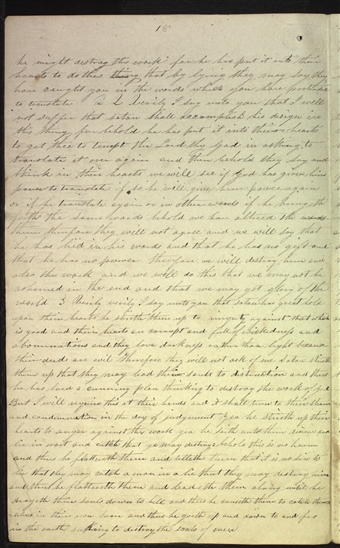 18
he might destroy this work for he has put it into their
hearts to do this thing that by lying they may say they
have caught you in the words which you have pretended
to translate 2 Verily I say unto you that I will
not suffer that satan shall accomplish his design in
this thing for behold he has put it into their hearts
to get thee to tempt the Lord thy God in asking to
translate it over again and then behold they say and
think in their hearts we will see if God has given him
power to translate if so he will give him power again
or if he translate again or in other words if he bringeth
forth the same words behold we have altered
them therefore they will not agree and we will say that
he has lied in his words and that he has no gift and
that he has no power therefore we will destroy him and
also the work and we will do this that we may not be
ashamed in the end and that we may get glory of the
world 3 Verily verily I say unto you that satan has great hold
upon their hearts he stirreth them up to against that which
is good and their hearts are corrupt and full of wickedness and
abominations and they love darkness rather than light because
their deeds are evil therefore they will not ask of me satan stirreth
them up that they may lead their souls to destruction and thus
he has laid a cunning plan thinking to destroy the work of God
But I will require this at their hands and it shall turn to their shame
and condemnation in the day of judgement yea he stirreth up their
hearts to anger against this work yea he saith unto them
lie in wait and catch that ye may destroy behold this is no harm
and thus he flattereth them and telleth them that it is no sin to
lie that they may catch a man in a lie that they may destroy him
and thus he flattereth them and leadeth them along until he
draggeth their souls down to hell and thus he causeth them to catch them
selves in their own snare and thus he goeth up and down to and fro
in the earth seeking to destroy the souls of men